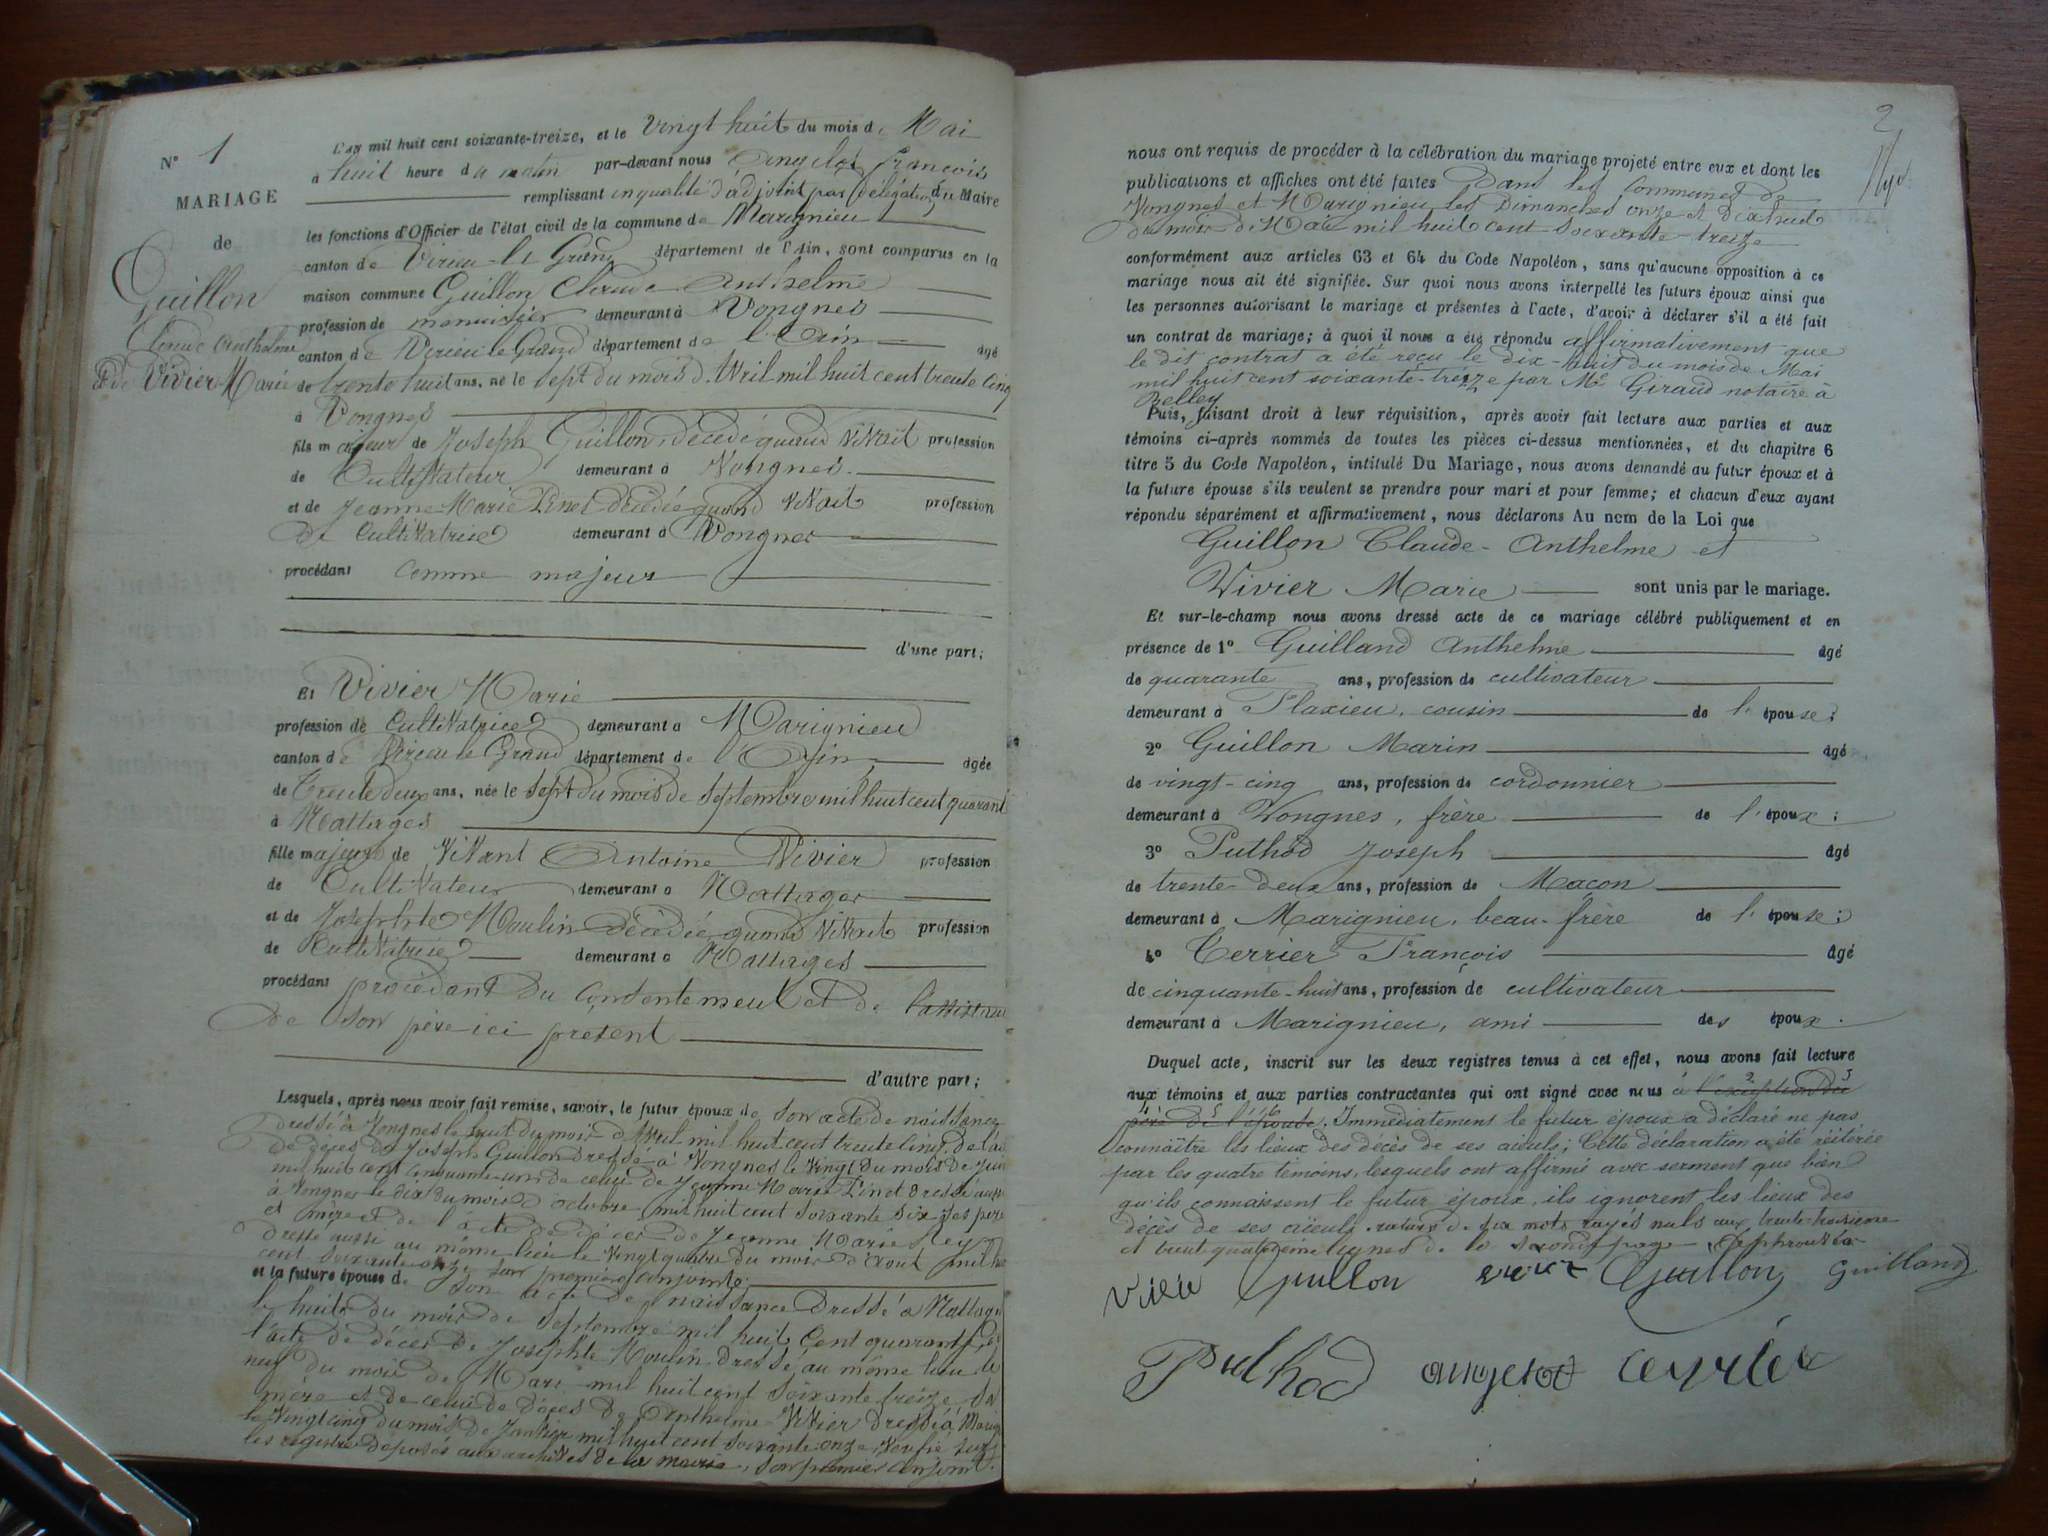 N° 1
MARIAGE
de
Guillon
Claude Anthelme
et de Vivier Marie
L'an mil huit cent soixante-treize, et le vingt huit du mois de Mai
à huit heure du matin par-devant nous Angelot françois
remplissant en qualité d'adjoint par délégation du Maire
les fonctions d'Officier de l'état civil de la commune de Marignieu
canton de Virieu-le Grand département de l'Ain, sont comparus en la
maison commune Guillon Claude Anthelme
profession de menuisier demeurant à Vongnes
canton de Virieu le Grand département de l'Ain âgé
de trente huit ans, né le Sept du mois d'Avril mil huit cent trente cinq
à Vongnes
fils majeur de Joseph Guillon, décédé quand vivait profession
de Cultivateur demeurant à Vongnes
et de Jeanne Marie Pinet décédée quand vivait profession
de cultivatrice demeurant à Vongnes
procédant comme majeur
d'une part;
Et Vivier Marie
profession de Cultivatrice demeurant à Marignieu
canton de Virieu le Grand département de l'Ain, âgée
de Trente deux ans, née le Sept du mois de Septembre mil huit cent quarant
à Nattages
fille majeure de vivant Antoine Vivier profession
de Cultivateur demeurant à Nattages
et de Josephte Moulin décédée quand vivait profession
de Cultivatrice demeurant à Nattages
procédant procédant du consentement et de l'assistance
de son père ici présent
d'autre part;
Lesquels, après nous avoir fait remise, savoir, le futur époux de son acte de naissance
dressé à Vongnes le huit du mois d'Avril mil huit cent trente cinq, de l'acte
de décès de Joseph Guillon dressé à Vongnes le vingt du mois de Juin
mil huit cent cinquante un de celui de Jeanne Marie Pinet dressé aussi
à Vongnes le dix du mois d'octobre mil huit cent soixante six ses père
et mère et de l'acte de décès de Jeanne Marie
dressé aussi au même lieu le vingt quatre du mois d'Août mil hu
cent soixante onze son premier conjoint.
et la future épouse de son acte de naissance dressé à Nattages
le huit du mois de Septembre mil huit cent quarante, de
l'acte de décès de Josephte Moulin dressé au même lieu le
neuf du mois de Mars mil huit cent soixante treize sa
mère et de celui de décès de Anthelme Vivier dressé à Marig
le vingt cinq du mois de Janvier mil huit cent soixante onze, vérifié sur
les registres déposés aux archives de la mairie, son premier conjoint.
2
nous ont requis de procéder à la célébration du mariage projeté entre eux et dont les
publications et affiches ont été faites dans les communes de
Vongnes et Marignieu les Dimanches onze et dixhuit
du mois de Mai mil huit cent soixante-treize
conformément aux articles 63 et 64 du Code Napoléon, sans qu'aucune opposition à ce
mariage nous ait été signifiée. Sur quoi nous avons interpellé les futurs époux ainsi que
les personnes autorisant le mariage et présentes à l'acte, d'avoir à déclarer s'il a été fait
un contrat de mariage; à quoi il nous a été répondu affirmativement que
le dit contrat a été reçu le dix-huit du mois de Mai
mil huit cent soixante-treize par Me Giraud notaire à
Belley
Puis, faisant droit à leur réquisition, après avoir fait lecture aux parties et aux
témoins ci-après nommés de toutes les pièces ci-dessus mentionnées, et du chapitre 6
titre 5 du Code Napoléon, intitulé Du Mariage, nous avons demandé au futur époux et à
la future épouse s'ils veulent se prendre pour mari et pour femme; et chacun d'eux ayant
répondu séparément et affirmativement, nous déclarons Au nom de la Loi que
Guillon Claude-Anthelme et
Vivier Marie sont unis par le mariage.
Et sur-le-champ nous avons dressé acte de ce mariage célébré publiquement et en
présence de 1° Guilland Anthelme âgé
de quarante ans, profession de cultivateur
demeurant à Flaxieu, cousin de l'épouse;
2° Guillon Marin âgé
de vingt-cinq ans, profession de cordonnier
demeurant à Vongnes, frère de l'époux;
3° Puthod Joseph âgé
de trente-deux ans, profession de Maçon
demeurant à Marignieu, beau-frère de l'épouse;
4° Terrier François âgé
de cinquante-huit ans, profession de cultivateur
demeurant à Marignieu, ami des époux.
Duquel acte, inscrit sur les deux registres tenus à cet effet, nous avons fait lecture
aux témoins et aux parties contractantes qui ont signé avec nous à l'exception du
père de l'épouse. Immédiatement le futur époux a déclaré ne pas
connaître les lieux des décès de ses aïeuls; Cette déclaration a été réitérée
par les quatre témoins, lesquels ont affirmé avec serment que bien
qu'ils connaissent le futur époux, ils ignorent les lieux des
décès de ses aïeuls. rature de six mots rayés nuls aux trente-troisième
et trente quatrième lignes de la seconde page
Guillon Guillon Guilland
Puthod angelot terrier